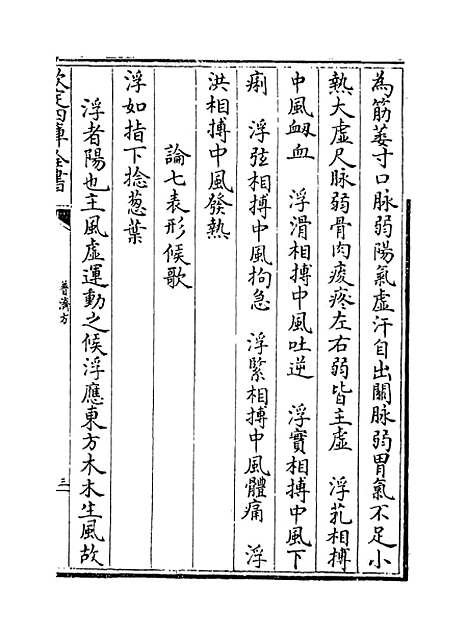 為筋萎寸口脉弱陽氣虛汗自出關脉弱胃氣不足小
熱大虛尺脉弱骨肉痠疼左右弱皆主虛　浮芤相搏
中風衂血　浮滑相搏中風吐逆　浮實相搏中風下
痢　浮弦相搏中風拘急　浮緊相搏中風體痛　浮
洪相搏中風發熱
論七表形候歌
浮如指下捻葱葉
浮者陽也主風虛運動之候浮應東方木木生風故
欽定四庫全書
普濟方
三